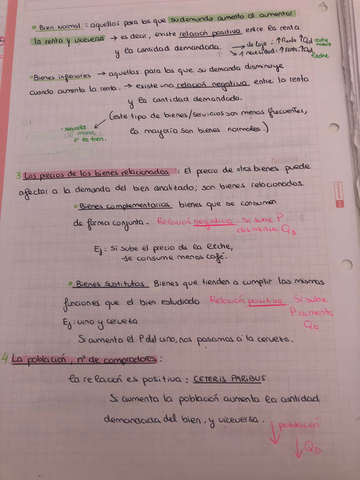 o Bien normal: aquellos para los que su demanda aumenta al aumentar
la renta y viceversa → es decir, existe relación positiva entre la renta
y la cantidad demandada. → de lujo. ↑Renta ↑Qd coche
↑ necesidad. ↑renta, ↑Qd
leche
o Bienes inferiores → aquellos para los que su demanda disminuye
cuando aumenta la renta. → existe una relación negativa entre la renta
y la cantidad demandada.
(este tipo de bienes/servicios son menos frecuentes,
la mayoría son bienes normales.)
segunda
mano,
tren.
3 Los precios de los bienes relacionados: El precio de otros bienes puede
afectar a la demanda del bien analizado; son bienes relacionados.
o Bienes complementarios: bienes que se consumen
de forma conjunta. Relación negativa: Si sube P
disminuye QD
Ej: Si sube el precio de la leche,
se consume menos café.
o Bienes sustitutos. Bienes que tienden a cumplir las mismas
funciones que el bien estudiado Relación positiva Si sube
P aumenta
QD
Ej: vino y cerveza
Si aumenta el P del vino, nos pasamos a la cerveza.
4 La población, nº de compradores:
la relación es positiva: CETERIS PARIBUS
Si aumenta la población aumenta la cantidad
demandada del bien, y viceversa.
↓ población
↓ QD